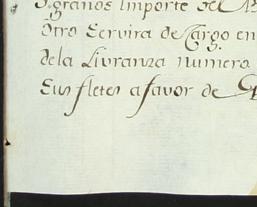 granos Importe del
Otro Servira de Cargo en
dela Livranza numero
Sus fletes a favor de